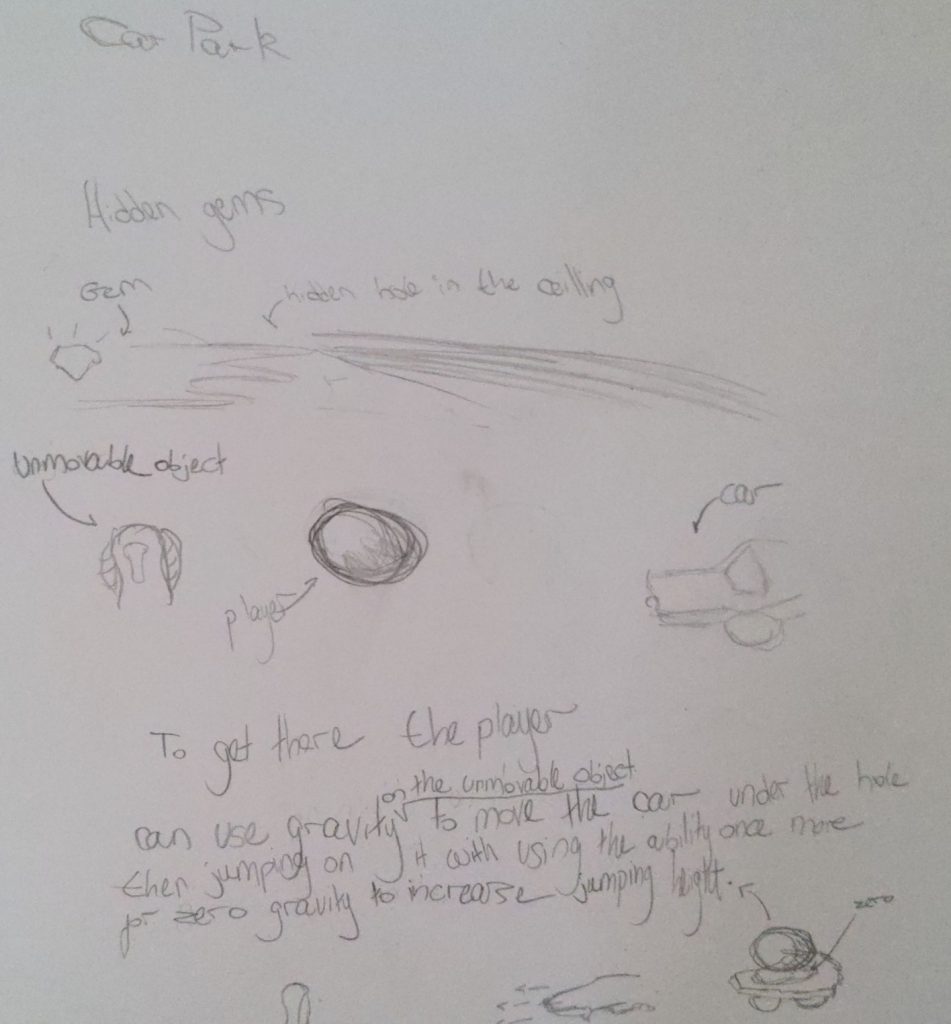 Car Park
Hidden gems
Gem
hidden hole in the ceilling
unmovable object
car
player
To get there the player
on the unmovable object
can use gravity to move the car under the hole
then jumping on it with using the ability once more
for zero gravity to increase jumping height.
zero